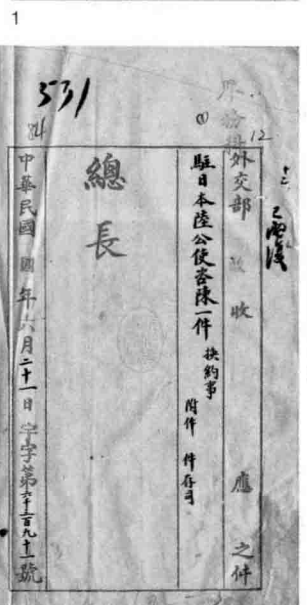 1
531
84
12
外交部 政 收 應 之件
駐日本陸公使咨陳一件 換約事 附件 件存司
總長
中華民國 年六月二十一日字第六千二百九十一號